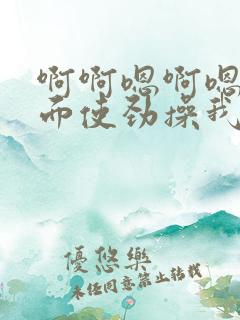 啊啊嗯啊嗯
而使劲操我
優悠樂
未任同意禁止转载